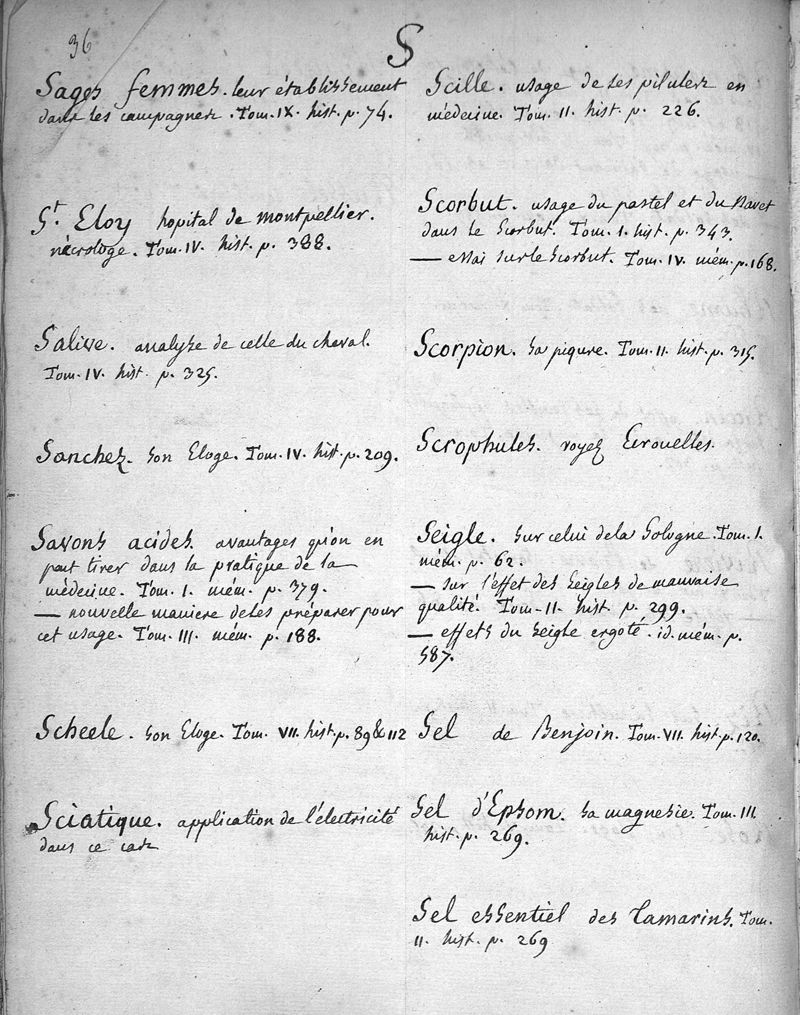 36
S
Sages femmes. leur établissement
dans les campagnes. Tom. IX. hist. p. 74.
St. Eloy hopital de montpellier.
nécrologe. Tom. IV. hist. p. 388.
Salive. analyse de celle du cheval.
Tom. IV. hist. p. 325.
Sanchez. son Eloge. Tom. IV. hist. p. 209.
Savons acides. avantages qu'on en
peut tirer dans la pratique de la
médecine. Tom. I. mém. p. 379.
— nouvelle maniere de les préparer pour
cet usage. Tom. III. mém. p. 188.
Scheele. son Eloge. Tom. VII. hist. p. 89 & 112
Sciatique. application de l'électricité
dans ce cas
Scille. usage de ses pilules en
médecine. Tom. II. hist. p. 226.
Scorbut. usage du pastel et du Navet
dans le Scorbut. Tom. I. hist. p. 343.
— essai sur le Scorbut. Tom. IV. mém. p. 168.
Scorpion. sa piqure. Tom. II. hist. p. 315.
Scrophules. voyez Ecrouelles.
Seigle. sur celui de la Sologne. Tom. I.
mém. p. 62.
— sur l'effet des Seigles de mauvaise
qualité. Tom. II. hist. p. 299.
— effets du Seigle ergoté. id. mém. p.
587.
Sel de Benjoin. Tom. VII. hist. p. 120.
Sel d'Epsom. sa magnesie. Tom. III.
hist. p. 269.
Sel essentiel des Tamarins. Tom.
II. hist. p. 269